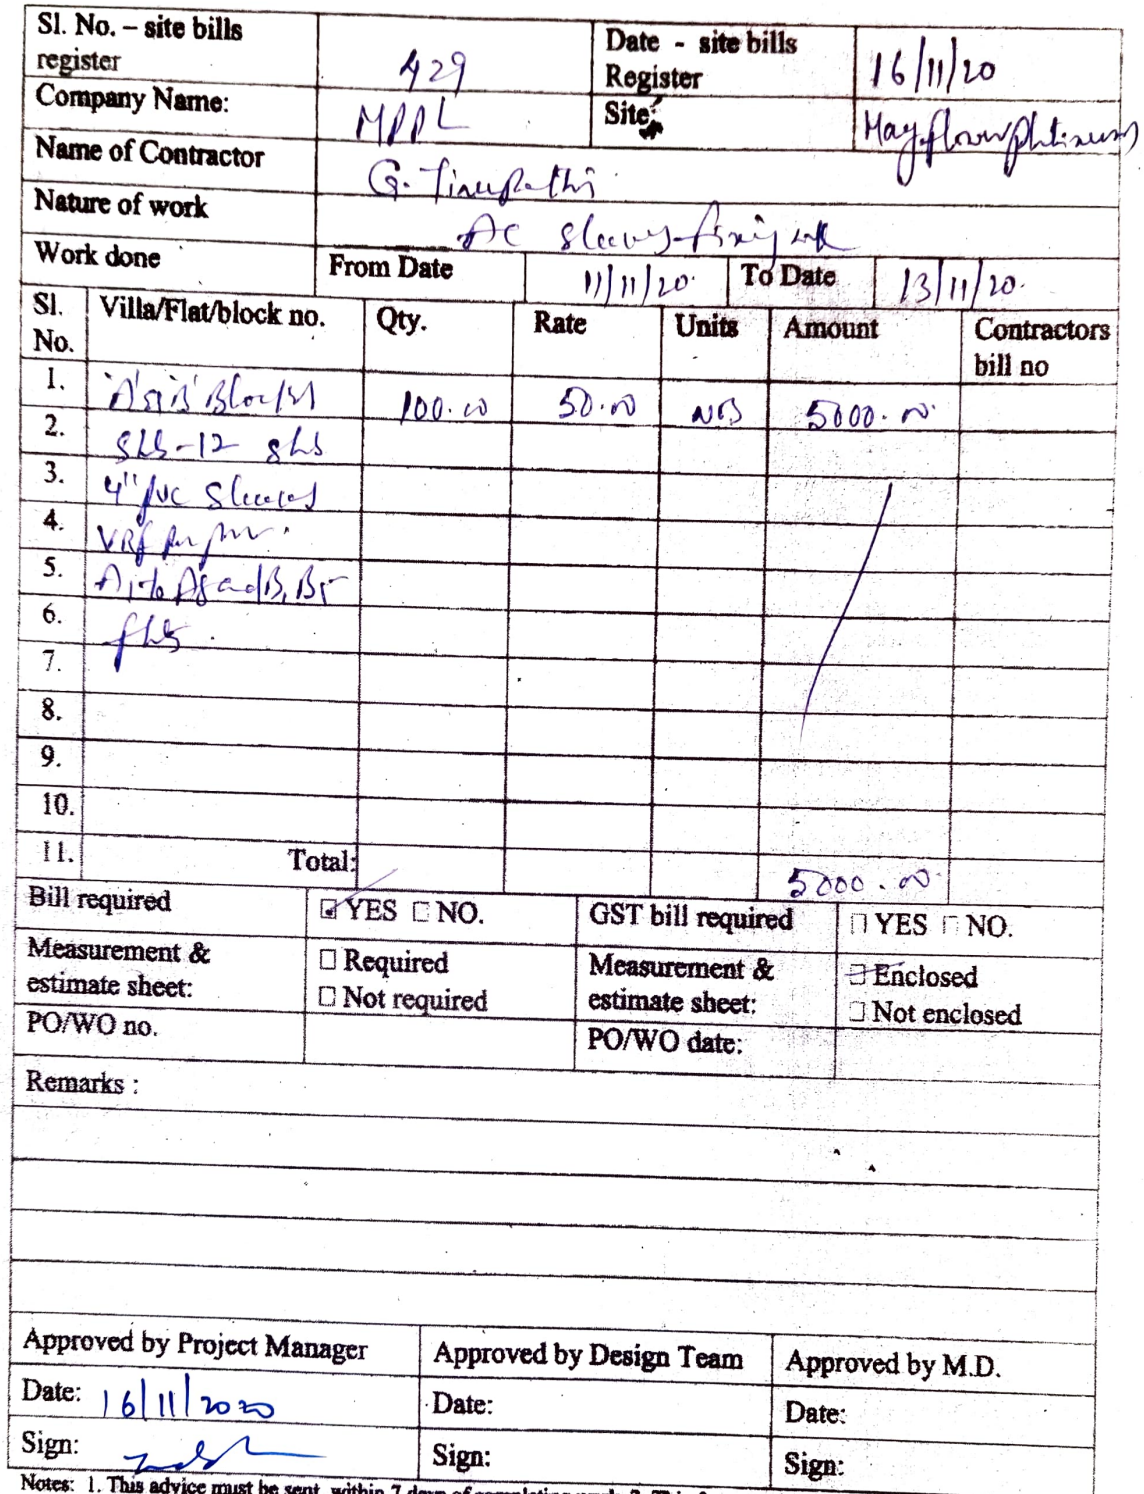 Sl. No. – site bills register 429 Date - site bills Register 16/11/20
Company Name: MPPL Site: Mayflower platinum
Name of Contractor G. Tirupathi
Nature of work AC sleeves fixing
Work done From Date 11/11/20. To Date 13/11/20.
Sl. No. Villa/Flat/block no. Qty. Rate Units Amount Contractors bill no
1. 100.00 50.00 NOS 5000.00
2.
3. 4" PVC Sleeves
4.
5.
6.
7.
8.
9.
10.
11. Total: 5000.00
Bill required YES NO. GST bill required YES NO.
Measurement & estimate sheet: Required Measurement & estimate sheet: Enclosed
Not required Not enclosed
PO/WO no. PO/WO date:
Remarks :
Approved by Project Manager Approved by Design Team Approved by M.D.
Date: 16/11/2020 Date: Date:
Sign: Sign: Sign:
Notes: 1. This advice must be sent within 7 days of